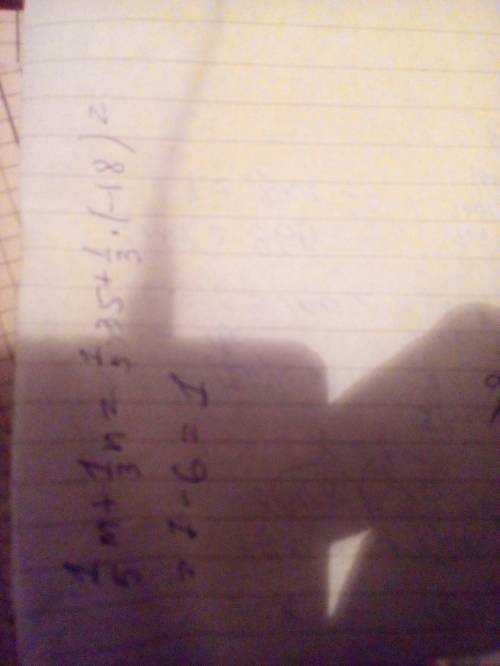 1/5 m + 1/3 n = 1/5 · 35 + 1/3 · (-18) =
= 7 - 6 = 1